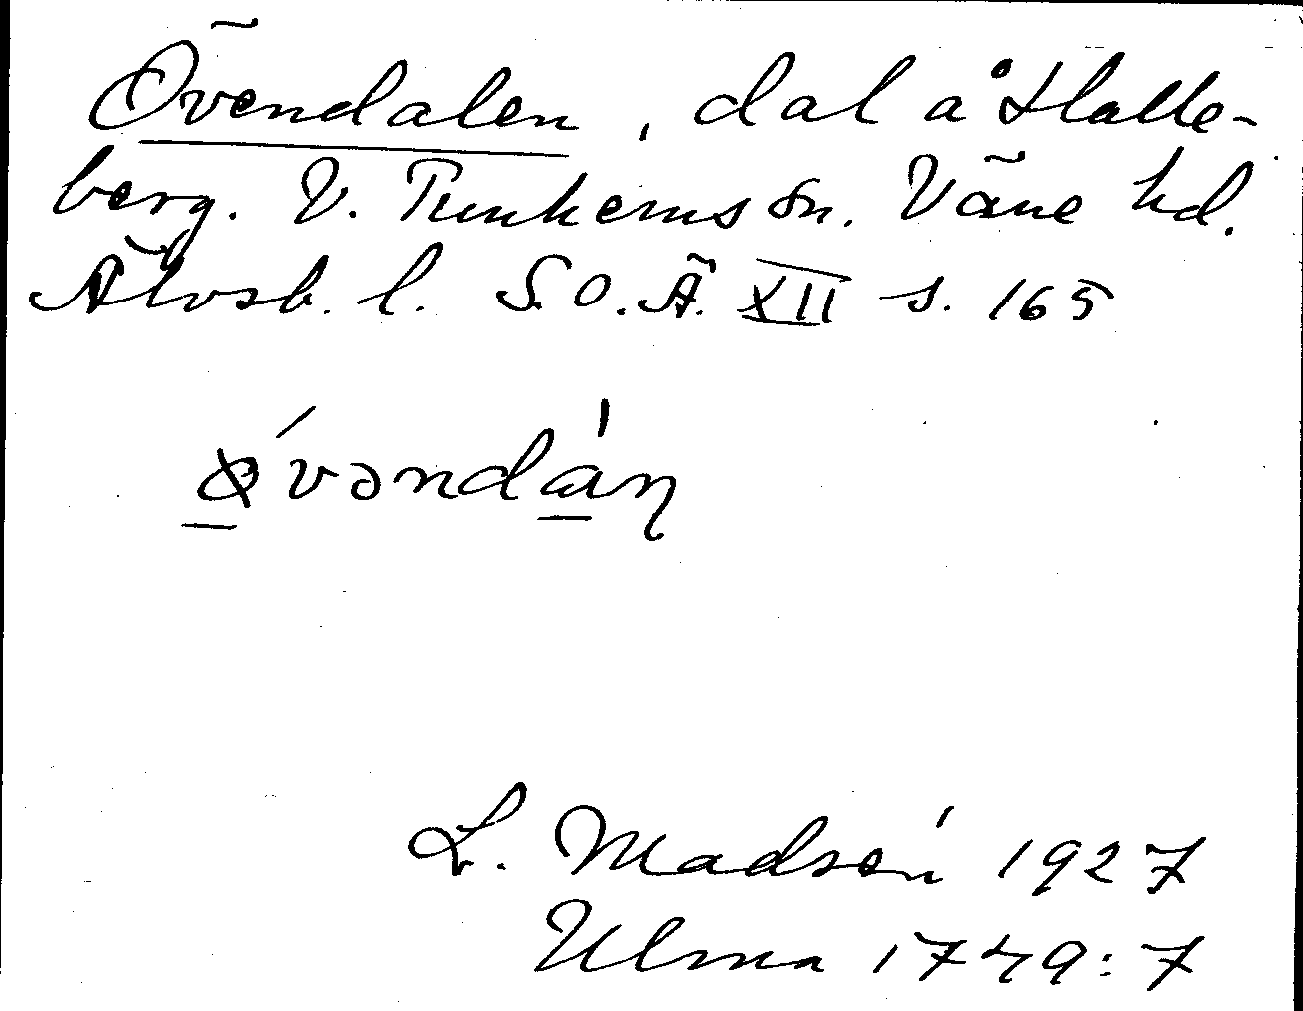 Övendalen, dal å Halle-
berg. V. Tunhems sn. Väne hd.
Älvsb. l. S.O.Ä. XII s. 165
ǿvəndán
L. Madsén 1927
Ulma 1749:7